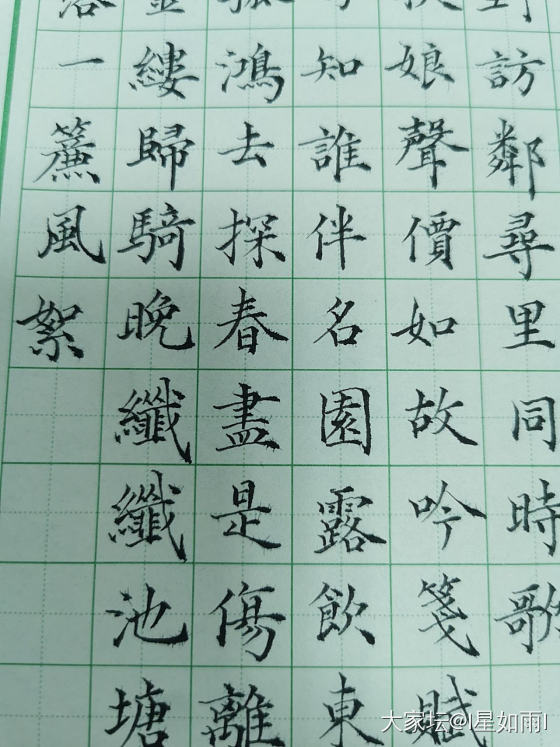 訪鄰尋里同時歌
娘聲價如故吟箋賦
知誰伴名園露飲東
鴻去探春盡是傷離
縷歸騎晚纖纖池塘
一簾風絮
大家坛@I星如雨I